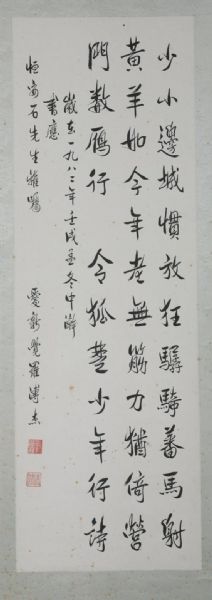 少小邊城慣放狂驏騎蕃馬射
黃羊如今年老無筋力猶倚營
門數雁行 令狐楚少年行詩
歲在一九八二年壬戌孟冬中澣
書應
恒安石先生雅囑
愛新覺羅溥杰